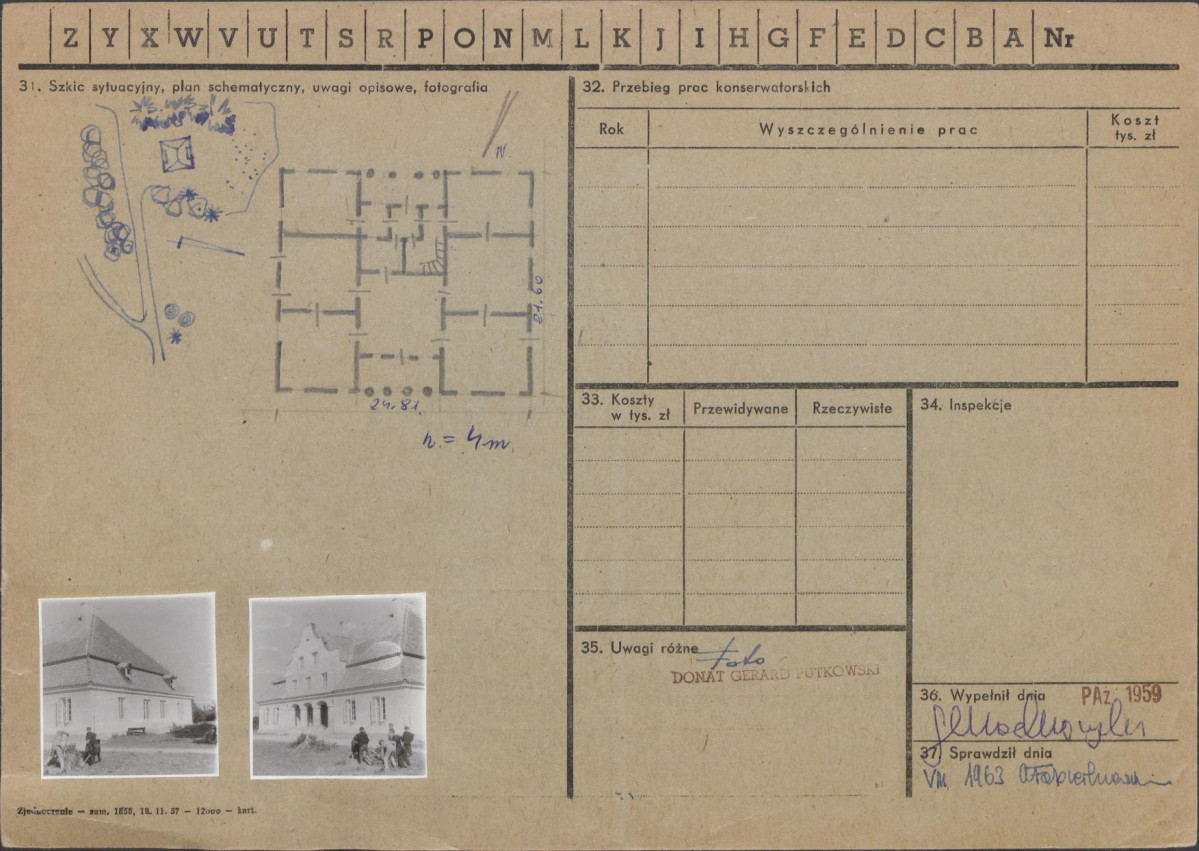 Z Y X W V U T S R P O N M L K J I H G F E D C B A Nr
31. Szkic sytuacyjny, plan schematyczny, uwagi opisowe, fotografia
N.
21.60
24.81.
h = 4 m.
32. Przebieg prac konserwatorskich
Rok Wyszczególnienie prac Koszt tys. zł
33. Koszty w tys. zł Przewidywane Rzeczywiste
34. Inspekcje
35. Uwagi różne
Foto
DONAT GERARD PUTKOWSKI
36. Wypełnił dnia PAŹ 1959
37. Sprawdził dnia
VIII. 1963
Zjednoczenie — zam. 1858, 18. 11. 57 — 12000 — kart.